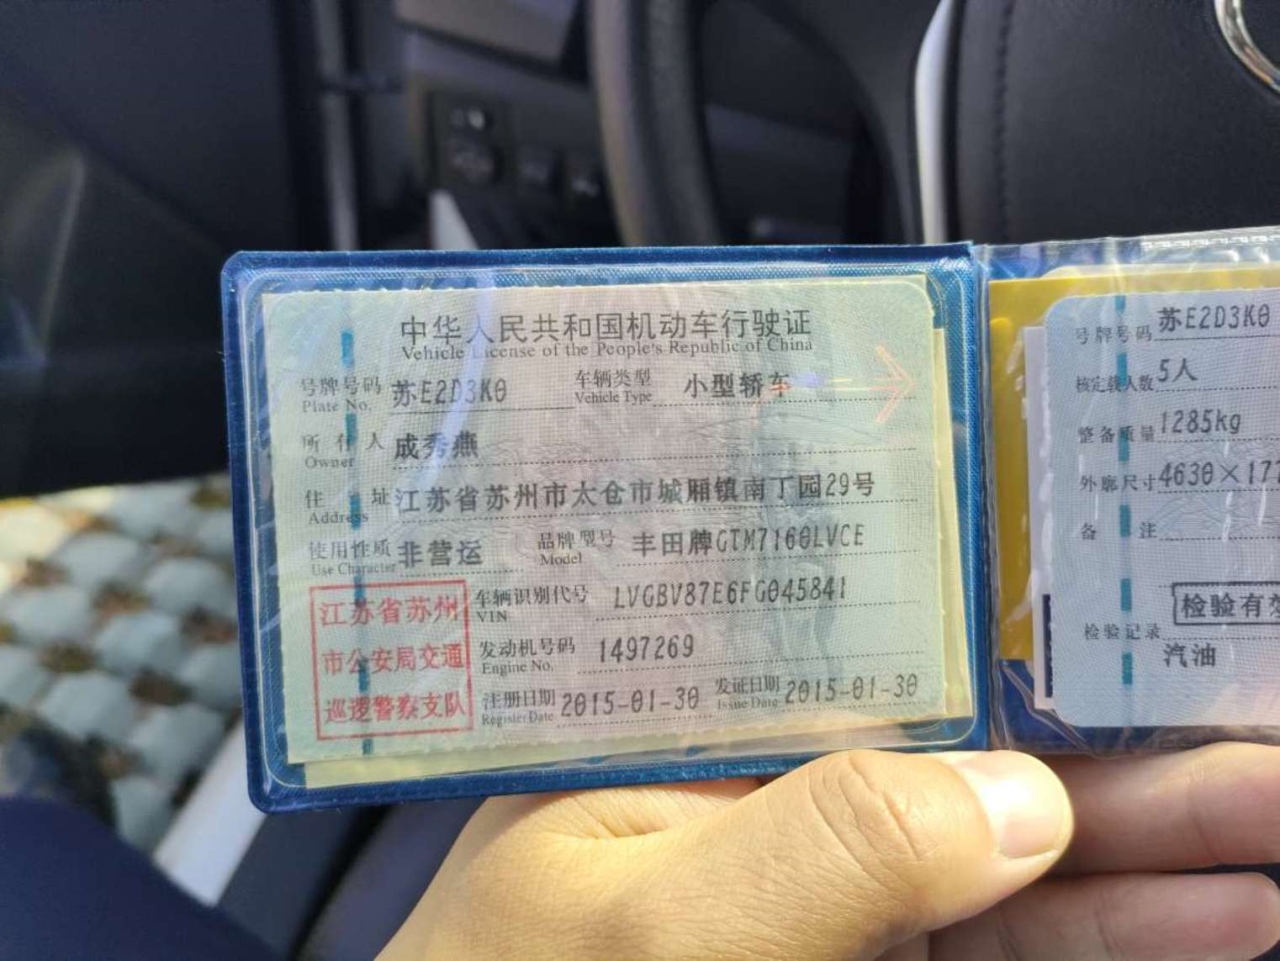 中华人民共和国机动车行驶证
Vehicle License of the People's Republic of China
号牌号码 苏E2D3K0 车辆类型 小型轿车
Plate No. Vehicle Type
所有人 成秀燕
Owner
住址 江苏省苏州市太仓市城厢镇南丁园29号
Address
使用性质 非营运 品牌型号 丰田牌GTM7160LVCE
Use Character Model
江苏省苏州
市公安局交通
巡逻警察支队
车辆识别代号 LVGBV87E6FG045841
VIN
发动机号码 1497269
Engine No.
注册日期 2015-01-30 发证日期 2015-01-30
Register Date Issue Date
号牌号码 苏E2D3K0
核定载人数 5人
整备质量 1285kg
外廓尺寸 4630×177
备注
检验有效
检验记录
汽油